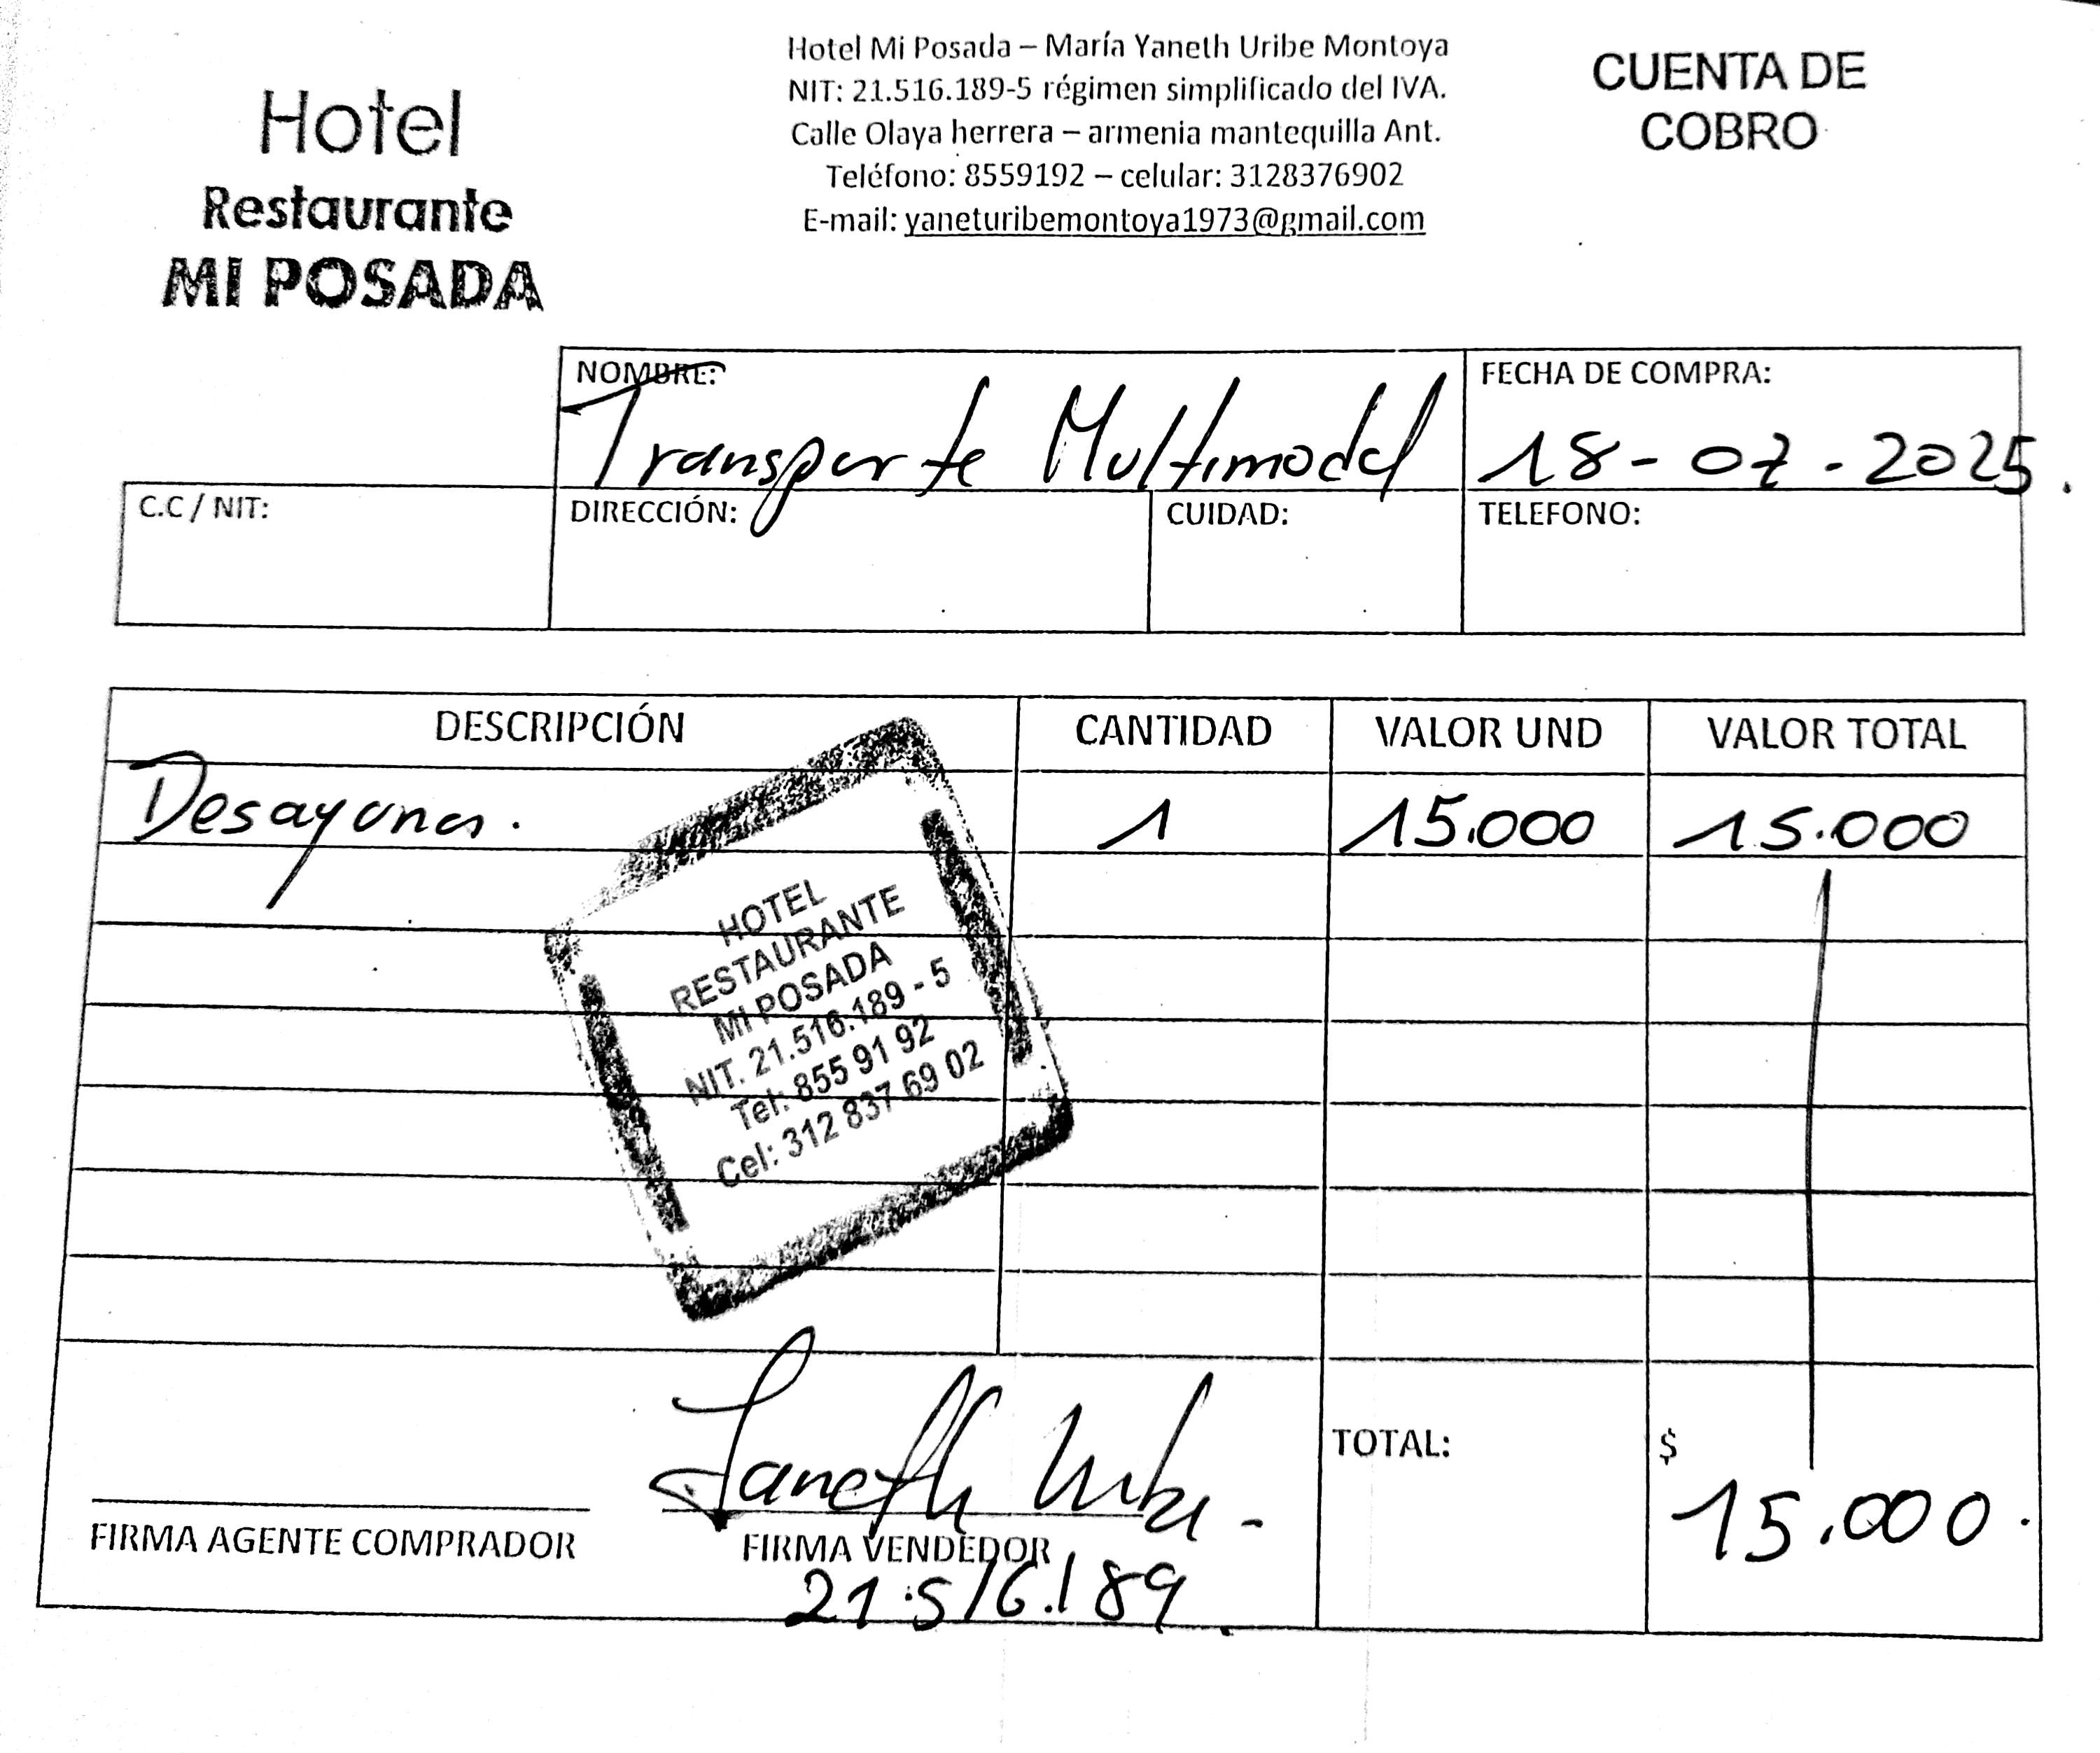 Hotel
Restaurante
MI POSADA
Hotel Mi Posada – María Yaneth Uribe Montoya
NIT: 21.516.189-5 régimen simplificado del IVA.
Calle Olaya herrera – armenia mantequilla Ant.
Teléfono: 8559192 – celular: 3128376902
E-mail: yaneturibemontoya1973@gmail.com
CUENTA DE
COBRO
NOMBRE:
Transporte Multimodal
FECHA DE COMPRA:
18-07-2025.
C.C / NIT:
DIRECCIÓN:
CUIDAD:
TELEFONO:
DESCRIPCIÓN CANTIDAD VALOR UND VALOR TOTAL
Desayunos. 1 15.000 15.000
HOTEL
RESTAURANTE
MI POSADA
NIT. 21.516.189 - 5
Tel: 855 91 92
Cel: 312 837 69 02
Yaneth Uribe
FIRMA AGENTE COMPRADOR
FIRMA VENDEDOR
21.516.189
TOTAL:
$ 15.000.